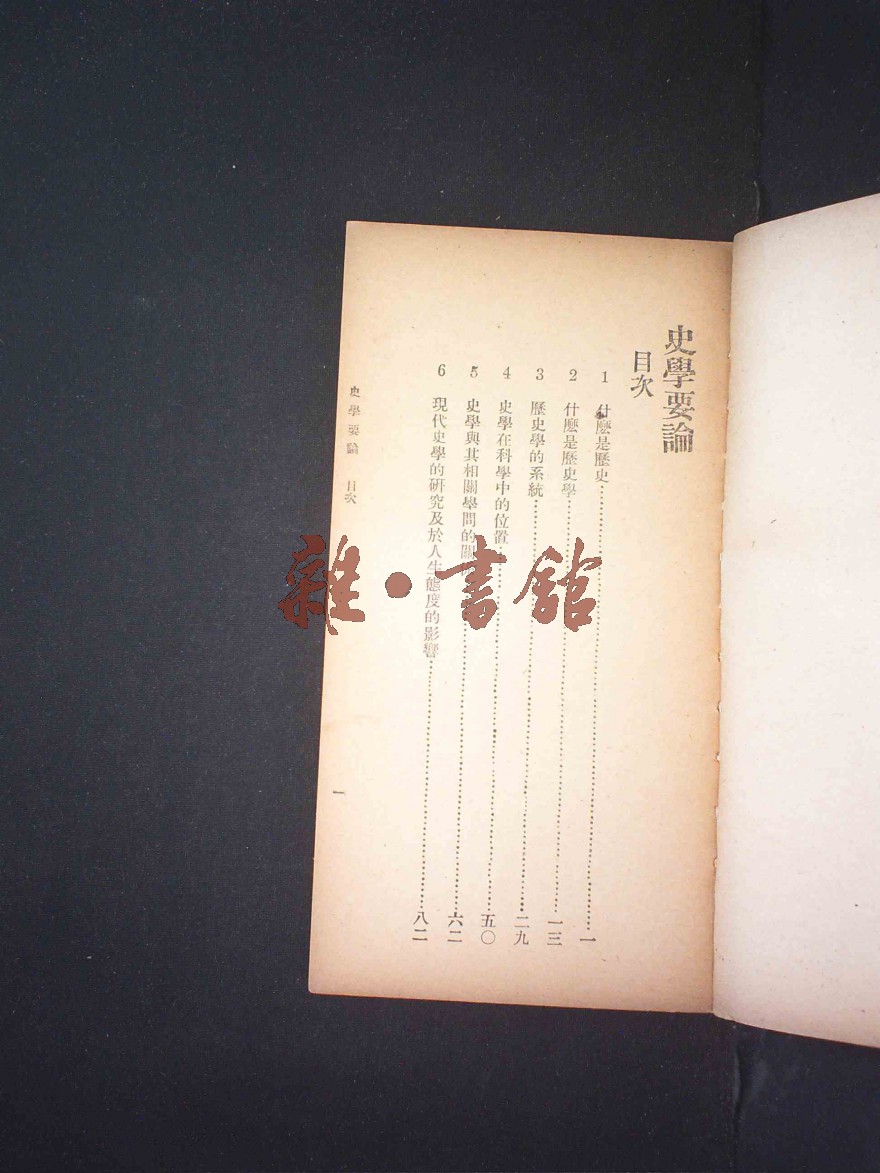 史學要論
目次
1 什麽是歷史……一
2 什麽是歷史學……一三
3 歷史學的系統……二九
4 史學在科學中的位置……五〇
5 史學與其相關學問的關……六二
6 現代史學的研究及於人生態度的影響……八二
史學要論 目次
一
雜·書館